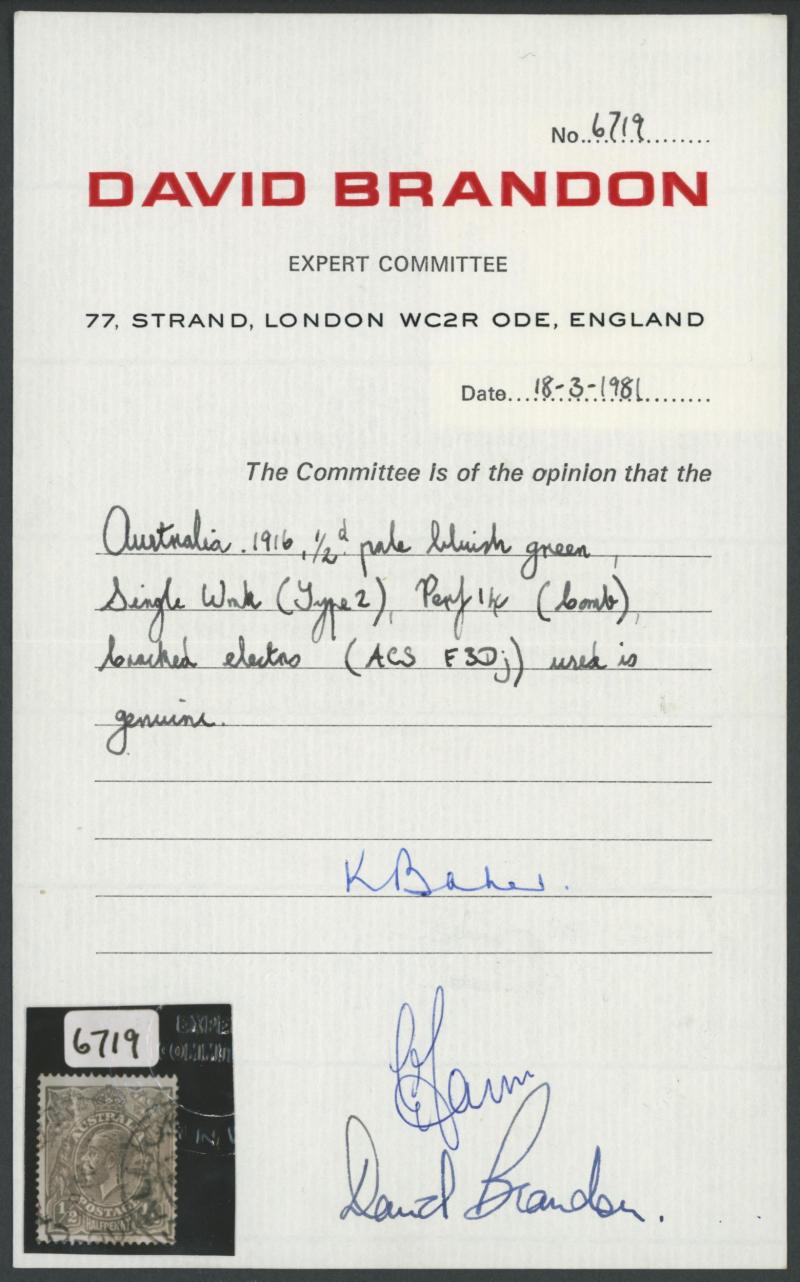 No..6719................
DAVID BRANDON
EXPERT COMMITTEE
77, STRAND, LONDON WC2R ODE, ENGLAND
Date....18-3-1981............
The Committee is of the opinion that the
Australia. 1916, 1/2d. pale bluish green,
Single Wmk (Type 2), Perf 14 (comb),
cracked electro (ACS F3Dj) used is
genuine.
K Baker.
David Brandon.
6719
EXPE
COMMIT
IN, W
AUSTRALIA
POSTAGE
1/2
HALFPENNY